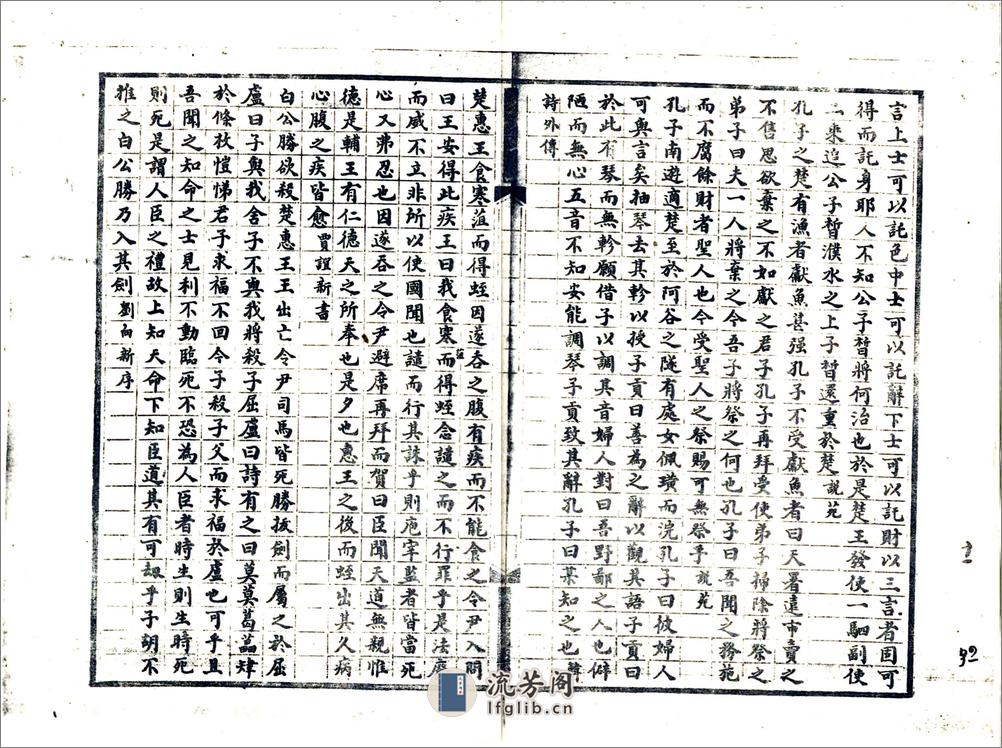 言上士可以託色中士可以託辭下士可以託財以三言者固可
得而託身耶人不知公子晳將何治也於是楚王發使一駟副使
二乘追公子晳濮水之上子晳還重於楚說苑
孔子之楚有漁者獻魚甚强孔子不受獻魚者曰天署遠市賣之
不售思欲棄之不如獻之君子孔子再拜受使弟子掃除將祭之
弟子曰夫人將棄之今吾子將祭之何也孔子曰吾聞之務苑
而不腐餘財者聖人也今受聖人之祭賜可無祭乎說苑
孔子南遊適楚至於阿谷之隧有處女佩璜而浣孔子曰彼婦人
可與言矣抽琴去其軫以授子貢曰善為之辭以觀其語子貢曰
於此有琴而無軫願借子以調其音婦人對曰吾野鄙之人也僻
陋而無心五音不知安能調琴子貢致其辭孔子曰某知之也韓
詩外傳
楚惠王食寒菹而得蛭因遂吞之腹有疾而不能食之令尹入問
曰王安得此疾王曰我食寒菹而得蛭念譴之而不行罪乎是法廢
而威不立非所以使國聞也譴而行其誅乎則庖宰監者皆當死
心又弗忍也因遂吞之令尹避席再拜而賀曰臣聞天道無親惟
德是輔王有仁德天之所奉也是夕也惠王之後而蛭出其久病
心腹之疾皆愈賈誼新書
白公勝欲殺楚惠王王出亡令尹司馬皆死勝拔劍而屬之於屈
盧曰子與我舍子不與我將殺子屈盧曰詩有之曰莫莫葛藟肄
於條枚愷悌君子求福不回今子殺子父而求福於盧也可乎且
吾聞之知命之士見利不動臨死不恐為人臣者時生則生時死
則死是謂人臣之禮故上知天命下知臣道其有可刼乎子胡不
推之白公勝乃入其劍劉向新序
92
流芳阁
lfglib.cn